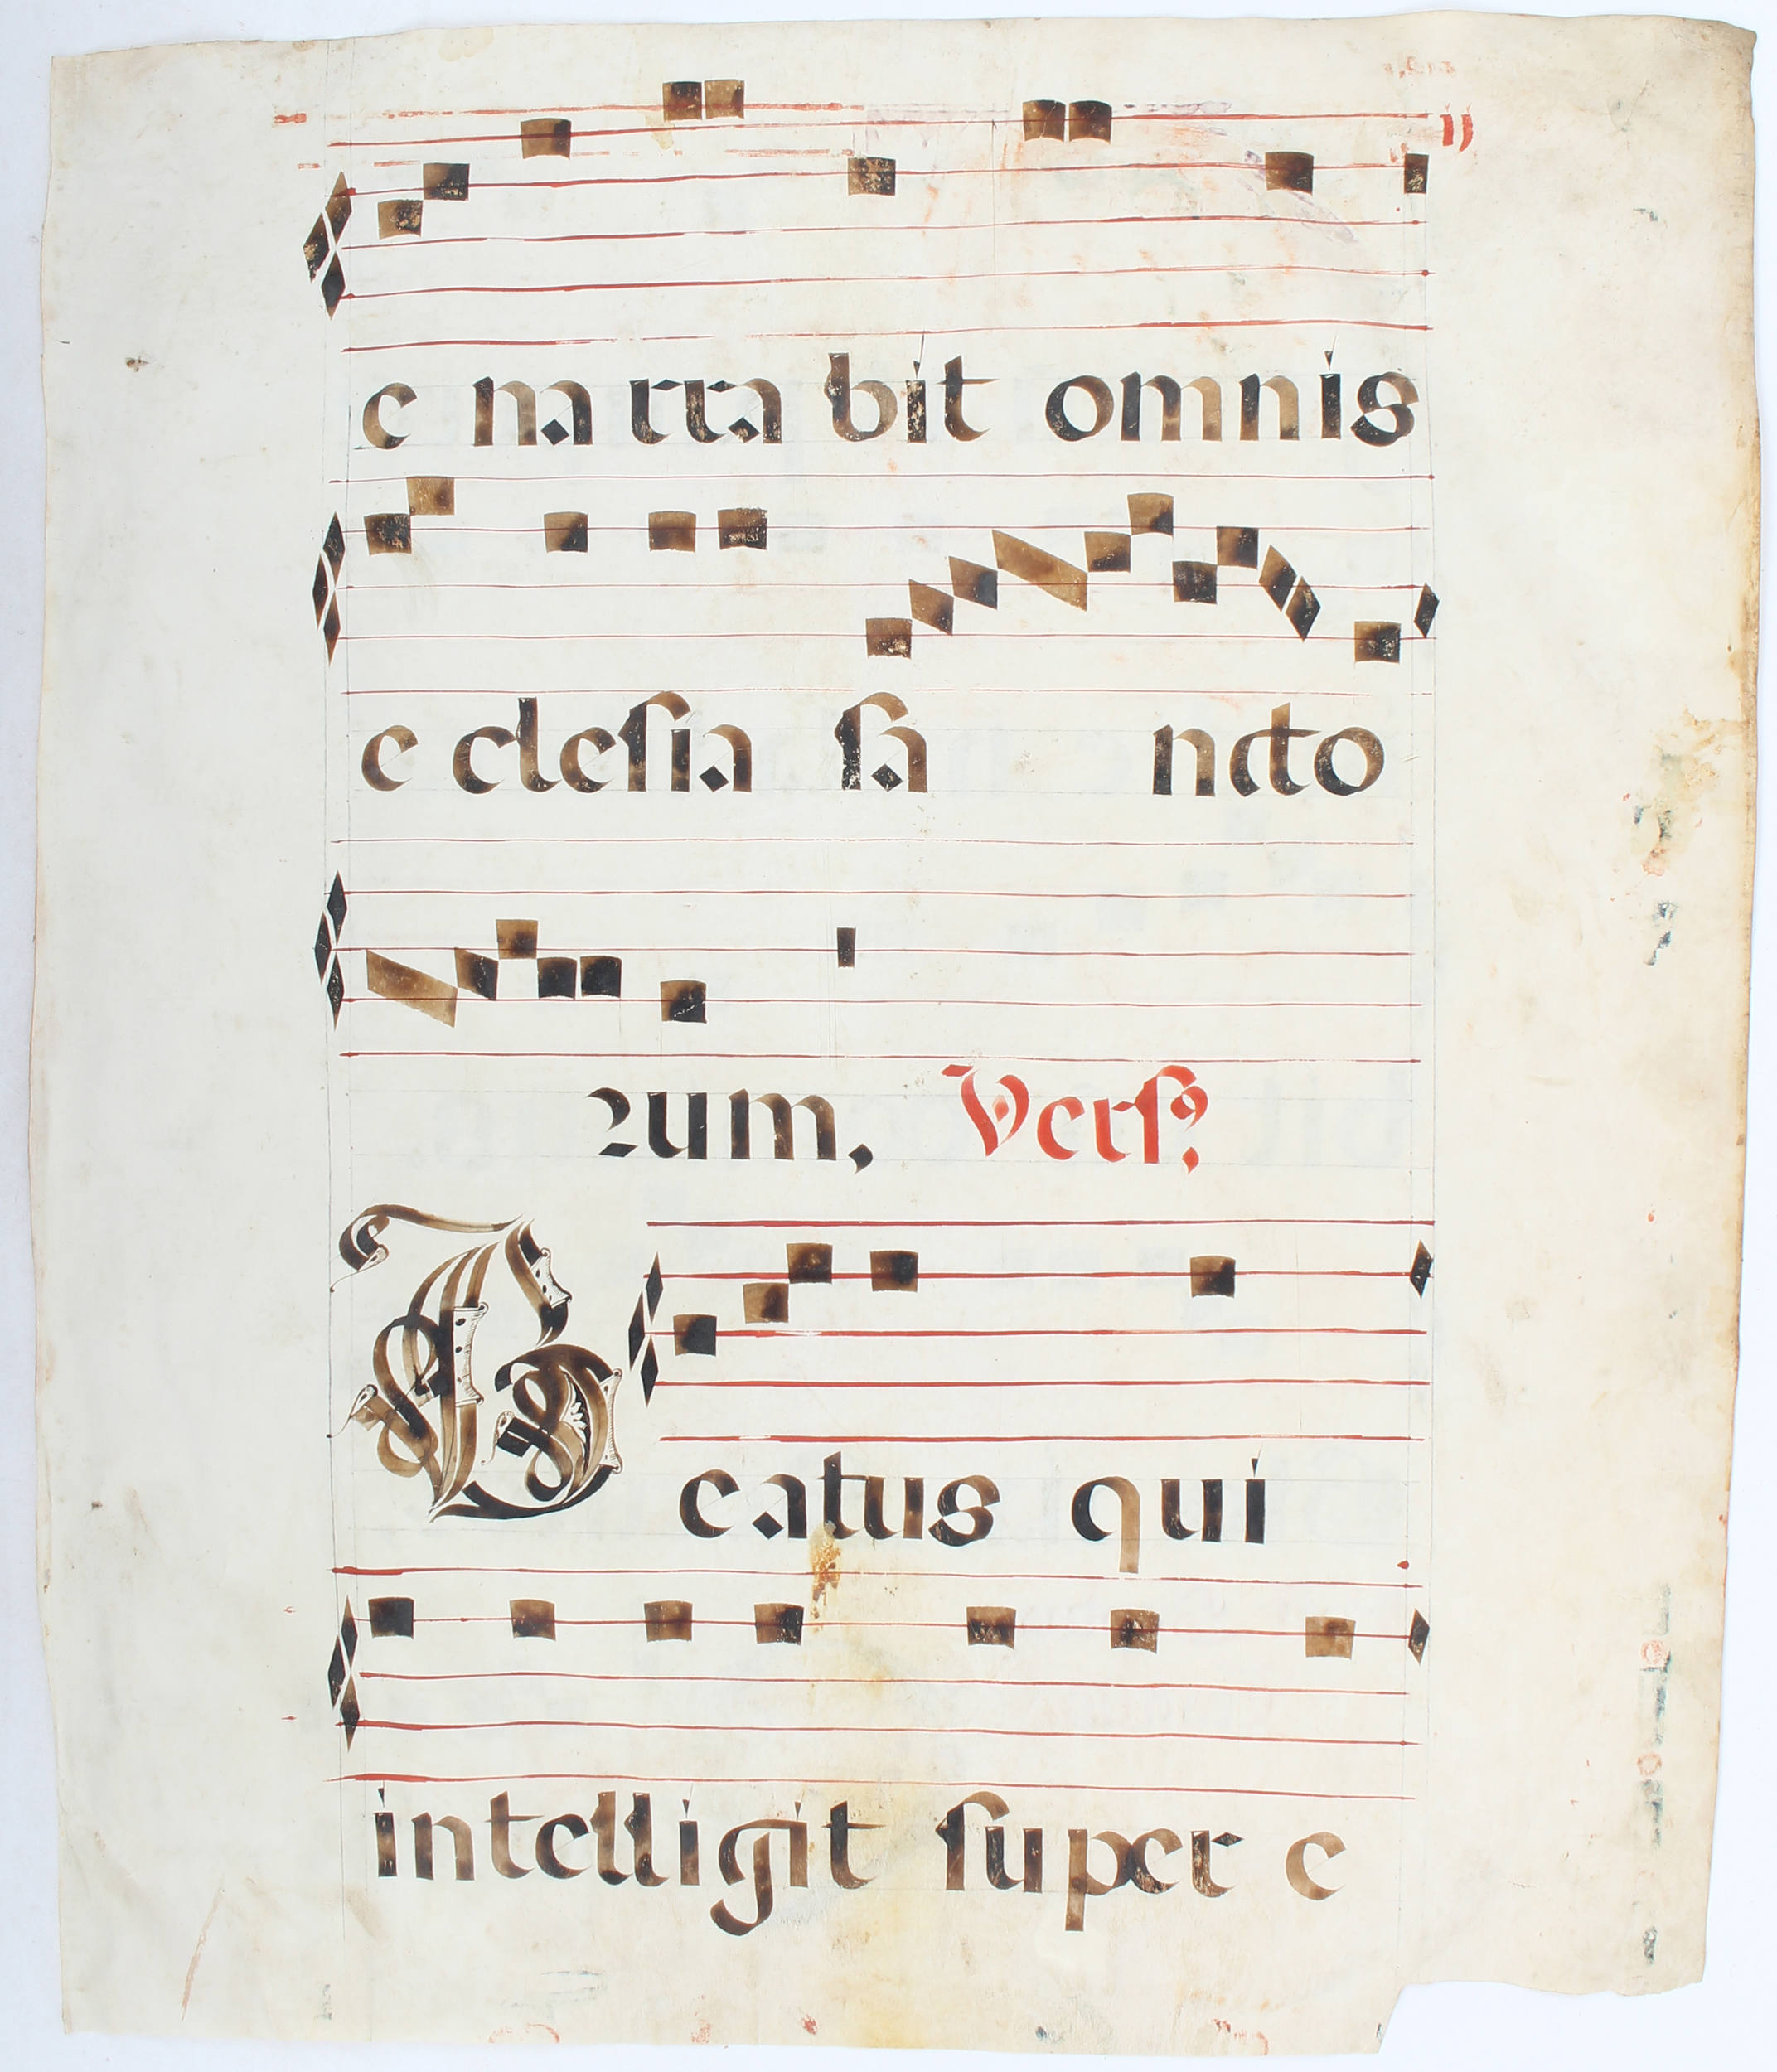 ij
e narra bit omnis
e clesia sa ncto
rum, Vers⁹
Beatus qui
intelligit super e